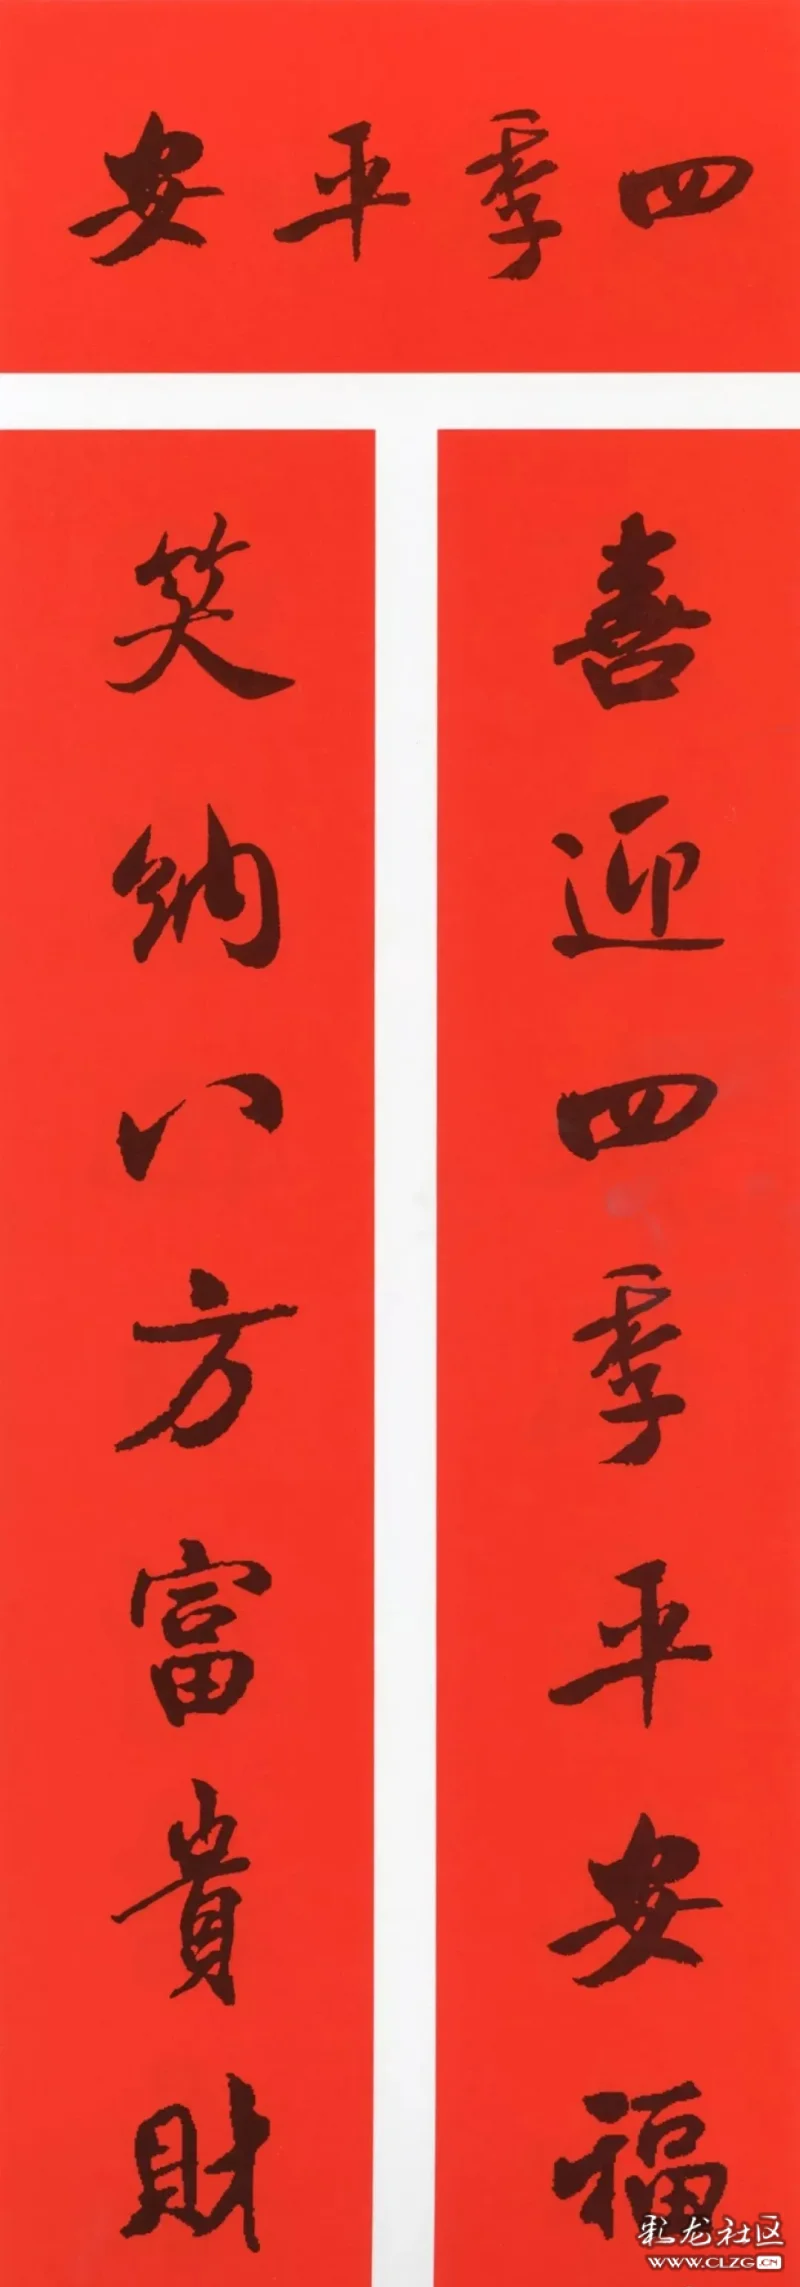 四季平安
喜迎四季平安福
笑纳八方富貴財
彩龙社区
WWW.CLZG.CN